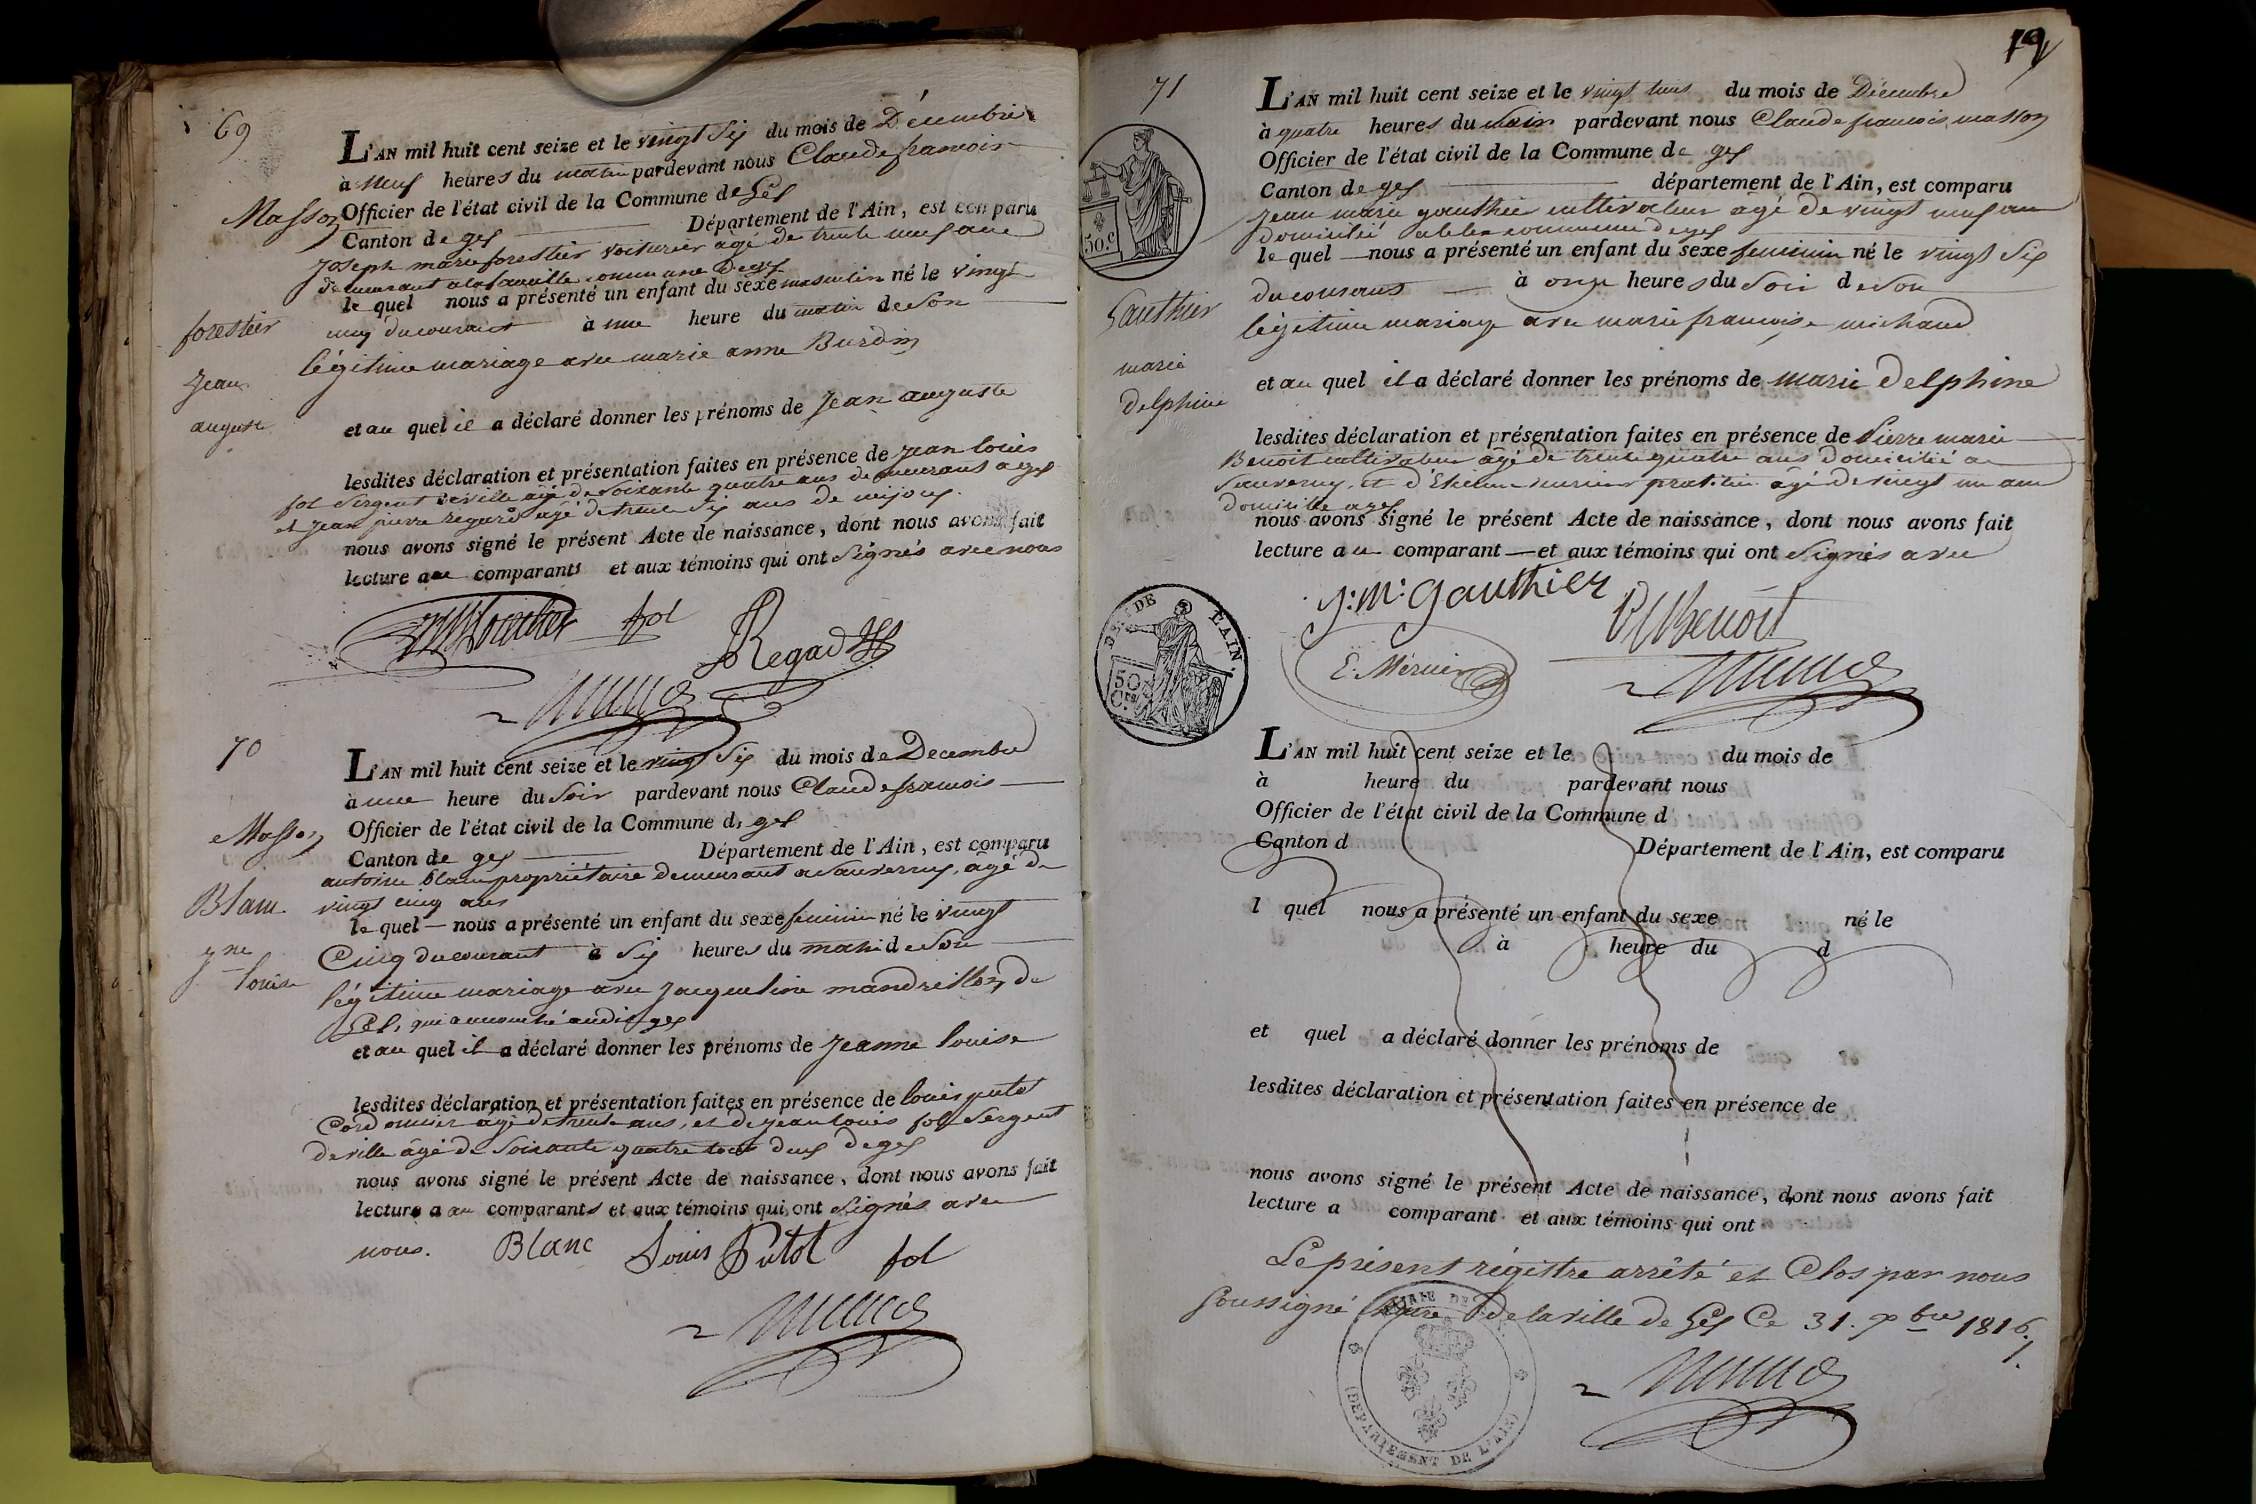 69
L'AN mil huit cent seize et le vingt six du mois de Décembre
à neuf heures du matin pardevant nous Claude françois
Masson Officier de l'état civil de la Commune de Gex
Canton de gex Département de l'Ain, est comparu
joseph marie forestier voiturier agé de trente neuf ans
demeurant a commune de gex
le quel nous a présenté un enfant du sexe masculin né le vingt
cinq du courant à une heure du matin de son
légitime mariage avec marie anne Burdin
forestier
jean
auguste
et au quel il a déclaré donner les prénoms de jean auguste
lesdites déclaration et présentation faites en présence de jean louis
fol Sergent de ville agé de soixante quatre ans demeurant a gex
et jean pierre regard agé de trente six ans de
nous avons signé le présent Acte de naissance, dont nous avons fait
lecture au comparants et aux témoins qui ont signés avec nous
fol
Regad
70
L'AN mil huit cent seize et le vingt six du mois de Decembre
à une heure du soir pardevant nous Claude françois
Masson Officier de l'état civil de la Commune de gex
Canton de gex Département de l'Ain, est comparu
antoine blanc propriétaire demeurant a Sauverny, agé de
vingt cinq ans
le quel — nous a présenté un enfant du sexe feminin né le vingt
Cinq du courant à six heures du matin de son
légitime mariage avec jacqueline mandrillon, de
Gex, qui a accouché audit gex
Blanc
jne
louise
et au quel il a déclaré donner les prénoms de jeanne louise
lesdites déclaration et présentation faites en présence de louis putod
Cordonnier agé de trente ans, et de jean louis fol Sergent
de ville âgé de soixante quatre tous deux de gex
nous avons signé le présent Acte de naissance, dont nous avons fait
lecture a au comparants et aux témoins qui ont signés avec
nous. Blanc Louis Putod fol
79
71
L'AN mil huit cent seize et le vingt du mois de Décembre
à quatre heures du soir pardevant nous Claude francois masson
Officier de l'état civil de la Commune de gex
Canton de gex département de l'Ain, est comparu
jean marie gauthier cultivateur agé de vingt neuf ans
domicilié commune de gex
le quel — nous a présenté un enfant du sexe feminin né le vingt six
du courant à onze heures du soir de son
légitime mariage avec marie françoise michaud
50.c
Gauthier
marie
delphine
et au quel il a déclaré donner les prénoms de marie Delphine
lesdites déclaration et présentation faites en présence de Pierre marie
Benoit cultivateur âgé de trente quatre ans domicilié a
Sauverny, et d'Etienne mercier praticien âgé de vingt un ans
domicilié a gex
nous avons signé le présent Acte de naissance, dont nous avons fait
lecture au comparant — et aux témoins qui ont signés avec
j: m: gauthier
PM Benoit
E. Mércier
DE L'AIN.
50
C.es
L'AN mil huit cent seize et le du mois de
à heure du pardevant nous
Officier de l'état civil de la Commune d
Canton d Département de l'Ain, est comparu
l quel nous a présenté un enfant du sexe né le
à heure du d
et quel a déclaré donner les prénoms de
lesdites déclaration et présentation faites en présence de
nous avons signé le présent Acte de naissance, dont nous avons fait
lecture a comparant et aux témoins qui ont
Le présent régistre arrêté et Clos par nous
soussigné Maire de la ville de Gex Ce 31. Xbre 1816.
MAIRIE DE
(DEPARTEMENT DE L'AIN)